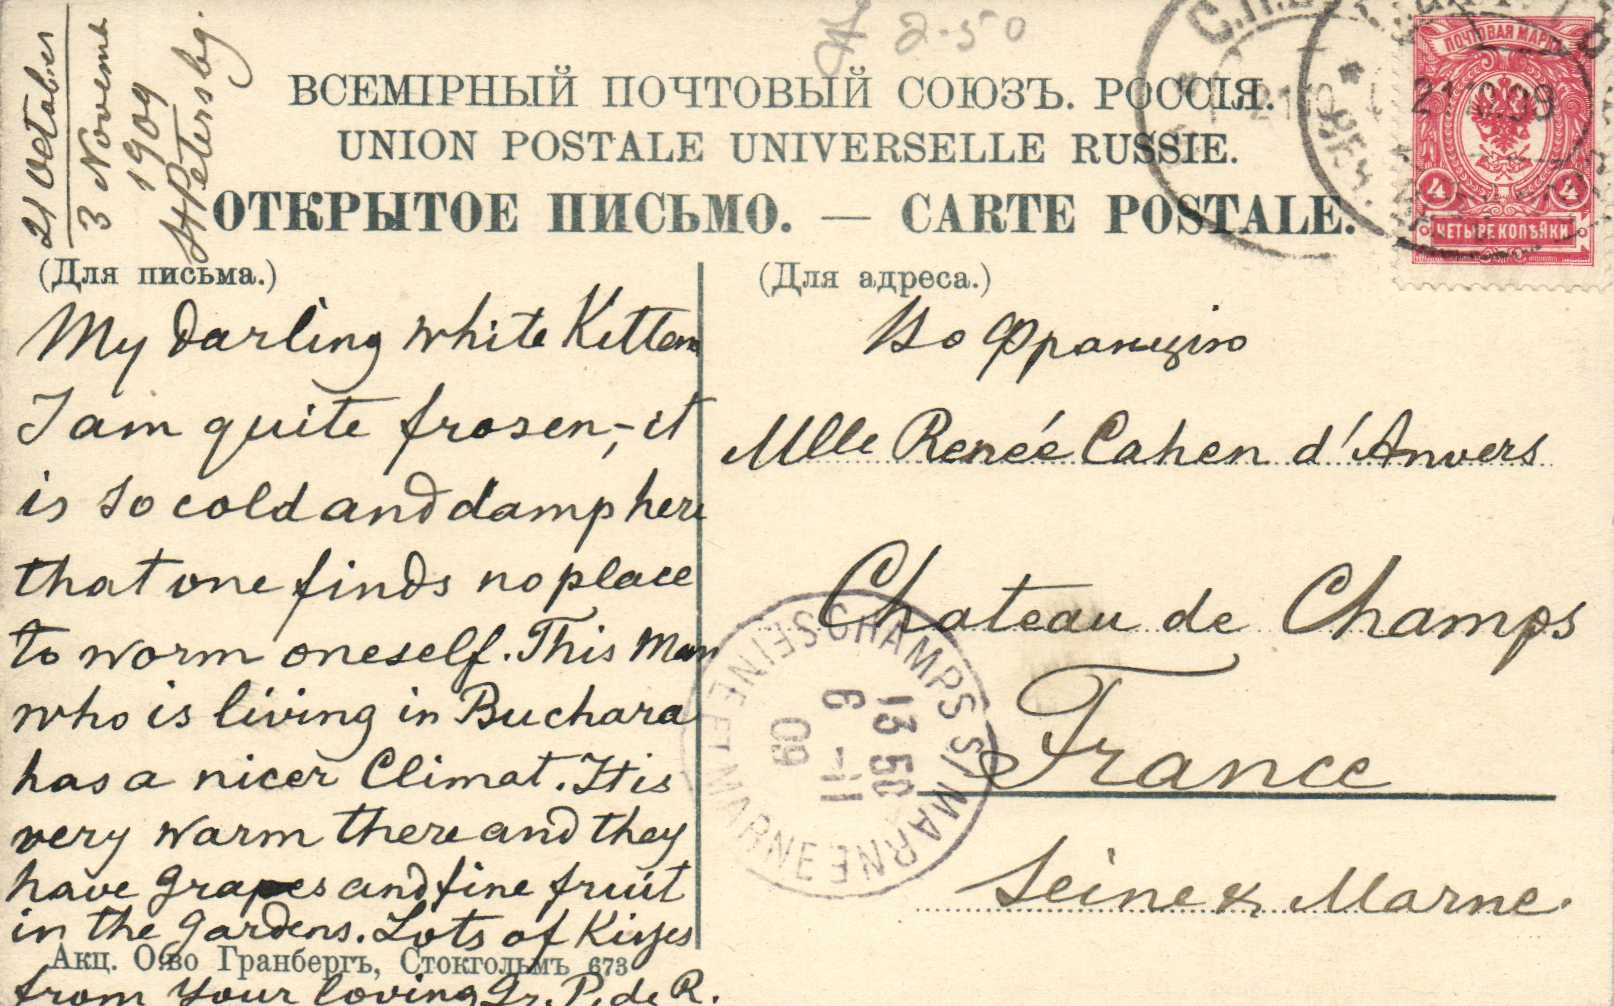 21 October
3 Novembr
1909
St Petersbg.
A 2.50
ВСЕМІРНЫЙ ПОЧТОВЫЙ СОЮЗЪ. РОССІЯ.
UNION POSTALE UNIVERSELLE RUSSIE.
ОТКРЫТОЕ ПИСЬМО. — CARTE POSTALE.
ПОЧТОВАЯ МАРКА
21.10.09
4 4
ЧЕТЫРЕ КОПѢЙКИ
(Для письма.)
My Darling white Kitten
I am quite frosen,- it
is so cold and damp here
that one finds no place
to worm oneself. This Man
who is living in Buchara
has a nicer Climat. It is
very warm there and they
have grapes and fine fruit
in the gardens. Lots of Kisses
from your loving Gr. P. de R.
(Для адреса.)
Во Францію
Mlle Renée Cahen d'Anvers
Chateau de Champs
France
Seine & Marne.
CHAMPS S/ MARNE
SEINE ET MARNE
13 50
6 -11
09
Акц. О-во Гранбергъ, Стокгольмъ 673